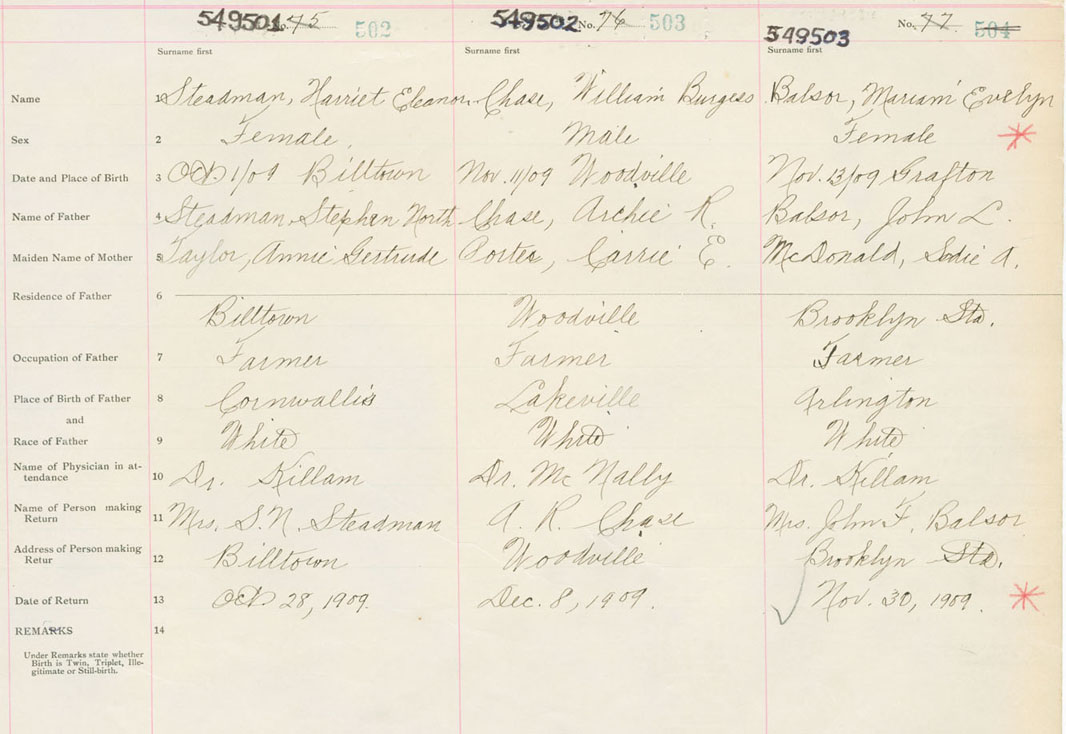 549501 No. 75 502 549502 No. 76 503 549503 No. 77 504
Surname first Surname first Surname first
Name 1 Steadman, Harriet Eleanor Chase, William Burgess Balsor, Mariam Evelyn
Sex 2 Female. Male Female
Date and Place of Birth 3 Oct 1/09 Billtown Nov. 11/09 Woodville Nov. 13/09 Grafton
Name of Father 4 Steadman, Stephen North Chase, Archie R. Balsor, John L.
Maiden Name of Mother 5 Taylor, Annie Gertrude Porter, Carrie E. McDonald, Sadie A.
Residence of Father 6
Billtown Woodville Brooklyn Sta.
Occupation of Father 7 Farmer Farmer Farmer
Place of Birth of Father 8 Cornwallis Lakeville Arlington
and
Race of Father 9 White White White
Name of Physician in at-
tendance 10 Dr. Killam Dr. McNally Dr. Killam
Name of Person making
Return 11 Mrs. S. N. Steadman A. R. Chase Mrs. John F. Balsor
Address of Person making
Retur 12 Billtown Woodville Brooklyn Sta.
Date of Return 13 Oct 28, 1909. Dec. 8, 1909. Nov. 30, 1909.
REMARKS 14
Under Remarks state whether
Birth is Twin, Triplet, Ille-
gitimate or Still-birth.